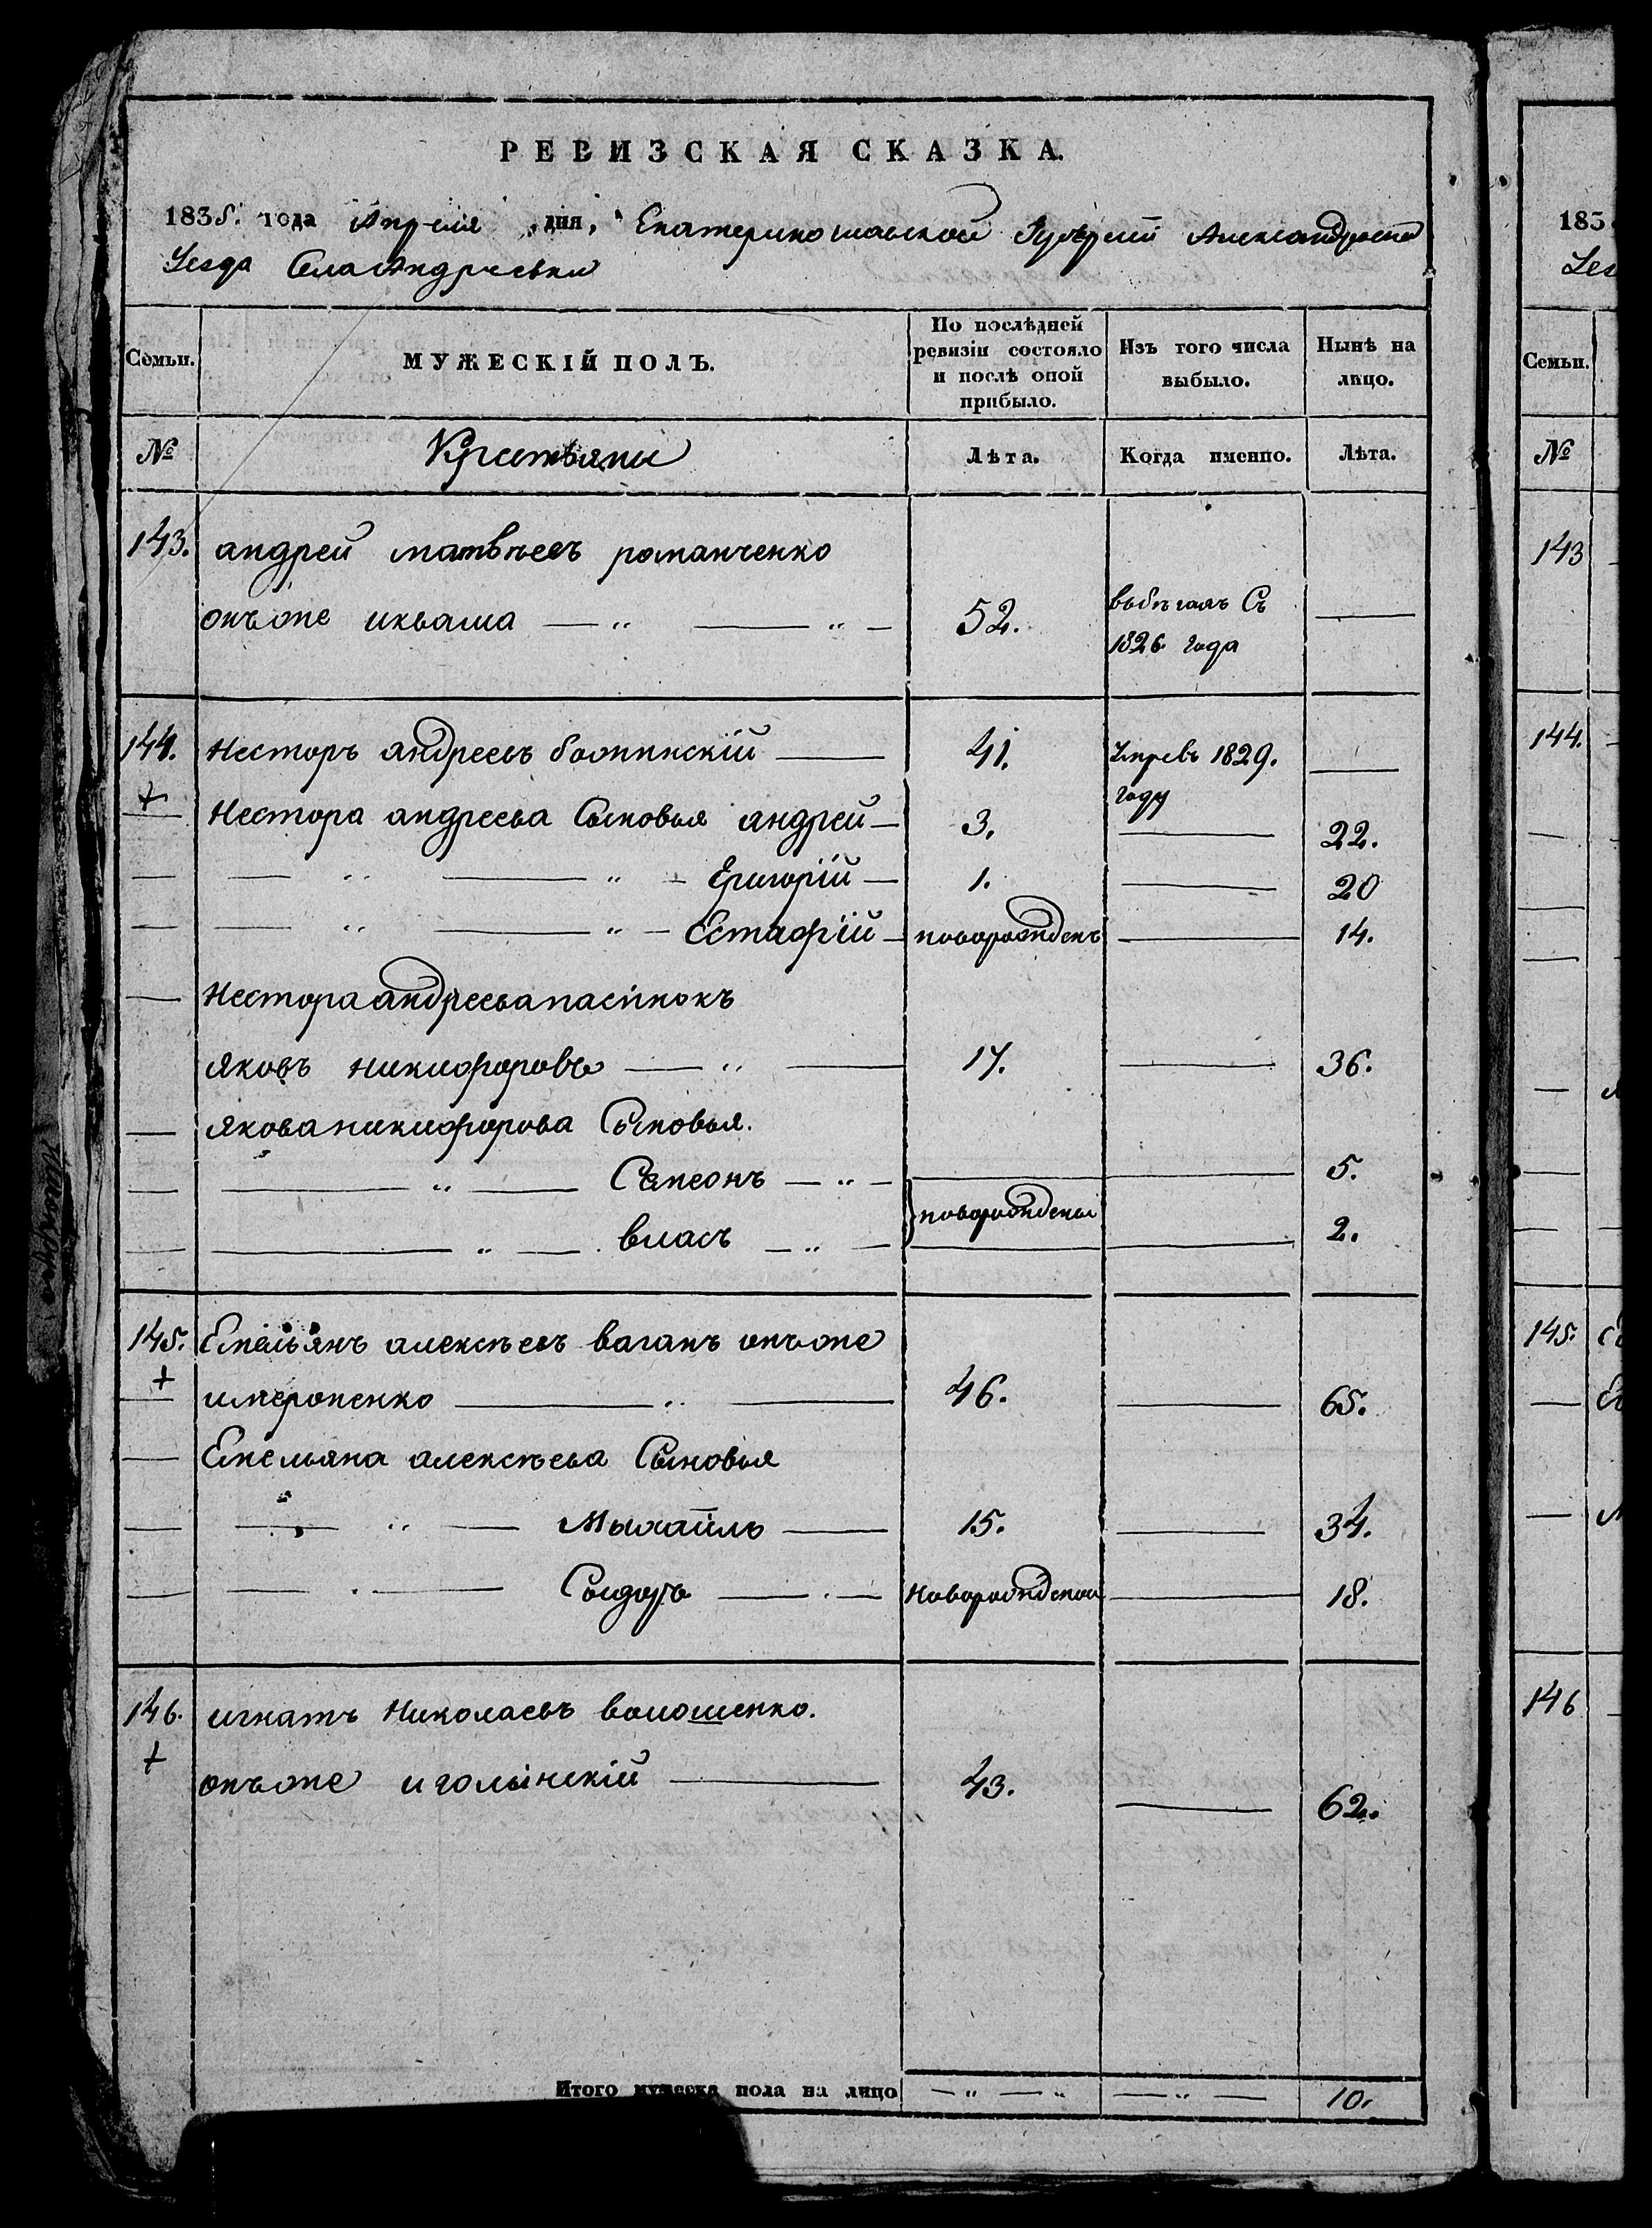 РЕВИЗСКАЯ СКАЗКА.
1835. года Апреля дня, Екатеринославской Губернии Александровского
Уезда Села Андреевки
Семьи.
МУЖЕСКІЙ ПОЛЪ.
По послѣдней ревизіи состояло и послѣ оной прибыло.
Изъ того числа выбыло.
Нынѣ на лицо.
№
Крестьяне
Лѣта.
Когда именно.
Лѣта.
143. андрей матвѣевъ романченко
онъже икваша — „ — „ — 52. выбѣгалъ Съ —
1826 года
144. Несторъ андреевъ — 41. Умревъ 1829. —
году
+ Нестора андреева Сыновья андрей — 3. — 22.
— — „ — „ — Григорій — 1. — 20
— — „ — „ — Естафій — новорожденъ — 14.
— Нестора андреева пасінокъ
яковъ никифоровъ — „ — 17. — 36.
— якова никифорова Сыновья.
— — „ — Семеонъ — „ — — — 5.
} новорождены
— — „ — власъ — „ — — — 2.
145. Емельянъ алексѣевъ ваганъ онъже
+ имероненко — „ — 46. — 65.
— Емельяна алексѣева Сыновья
— — „ — Мыхайлъ — 15. — 34.
— — . — Сыдоръ — . — Новорожденой — 18.
146. игнатъ Николаевъ волошенко.
+ онъже иголынскій — 43. — 62.
Итого мужеска пола на лицо — „ — „ — „ — 10.
183
Уез
Семьи.
№
143
144.
145.
146